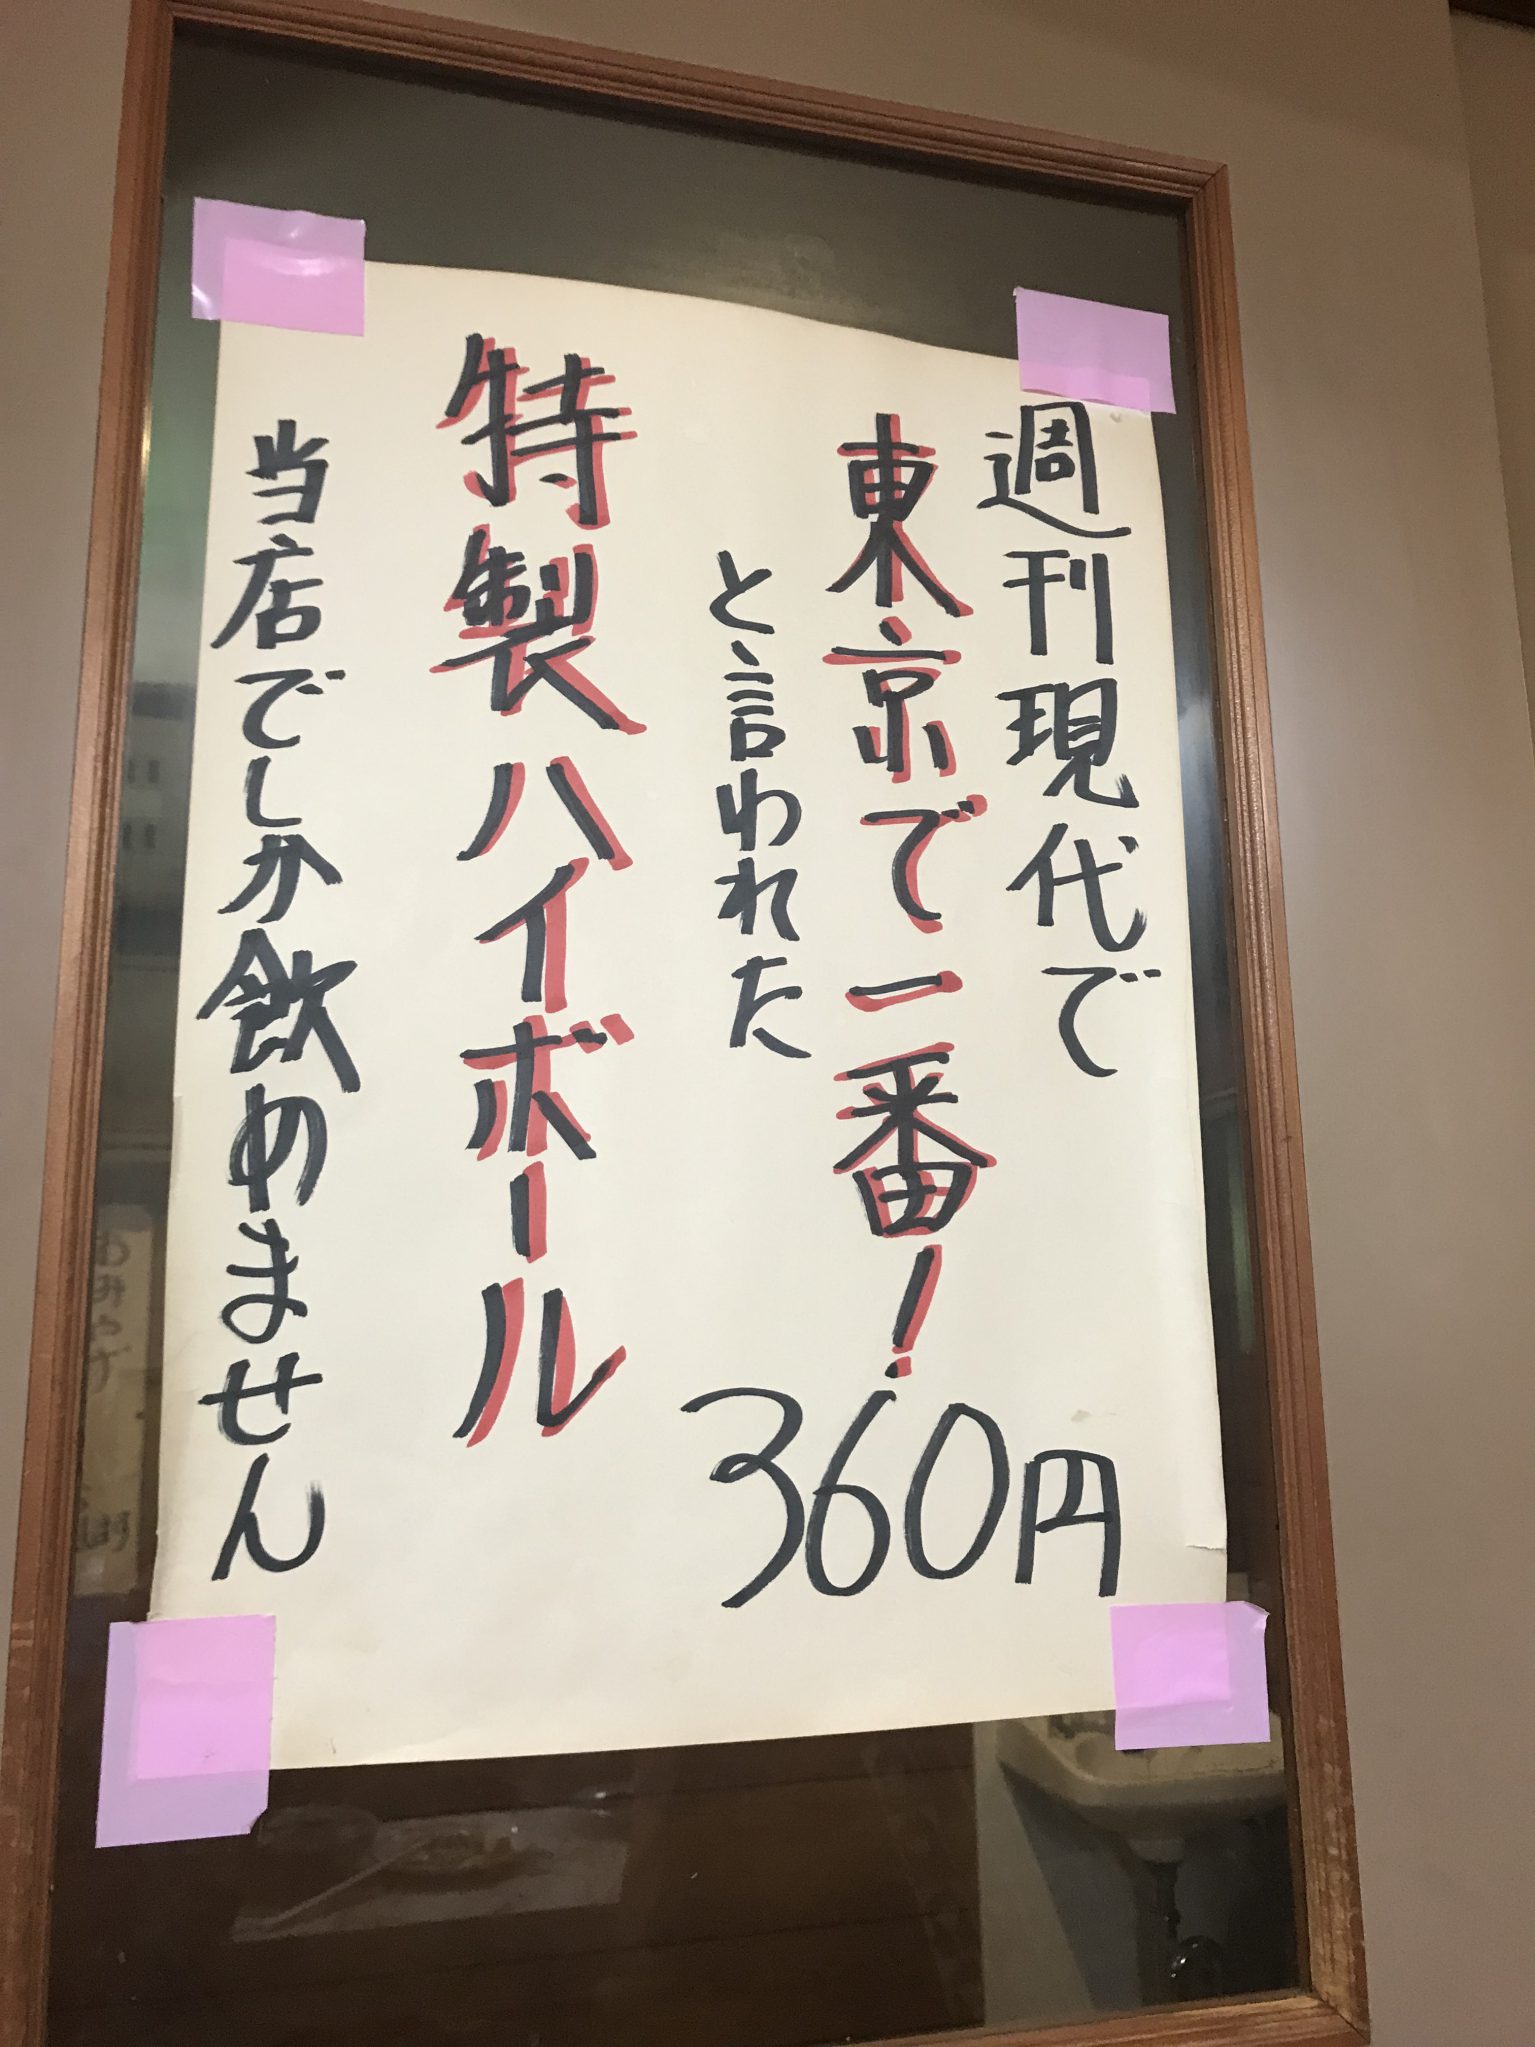 週刊現代で
東京で一番!
と言われた
360円
特製ハイボール
当店でしか飲めません
おみやげ